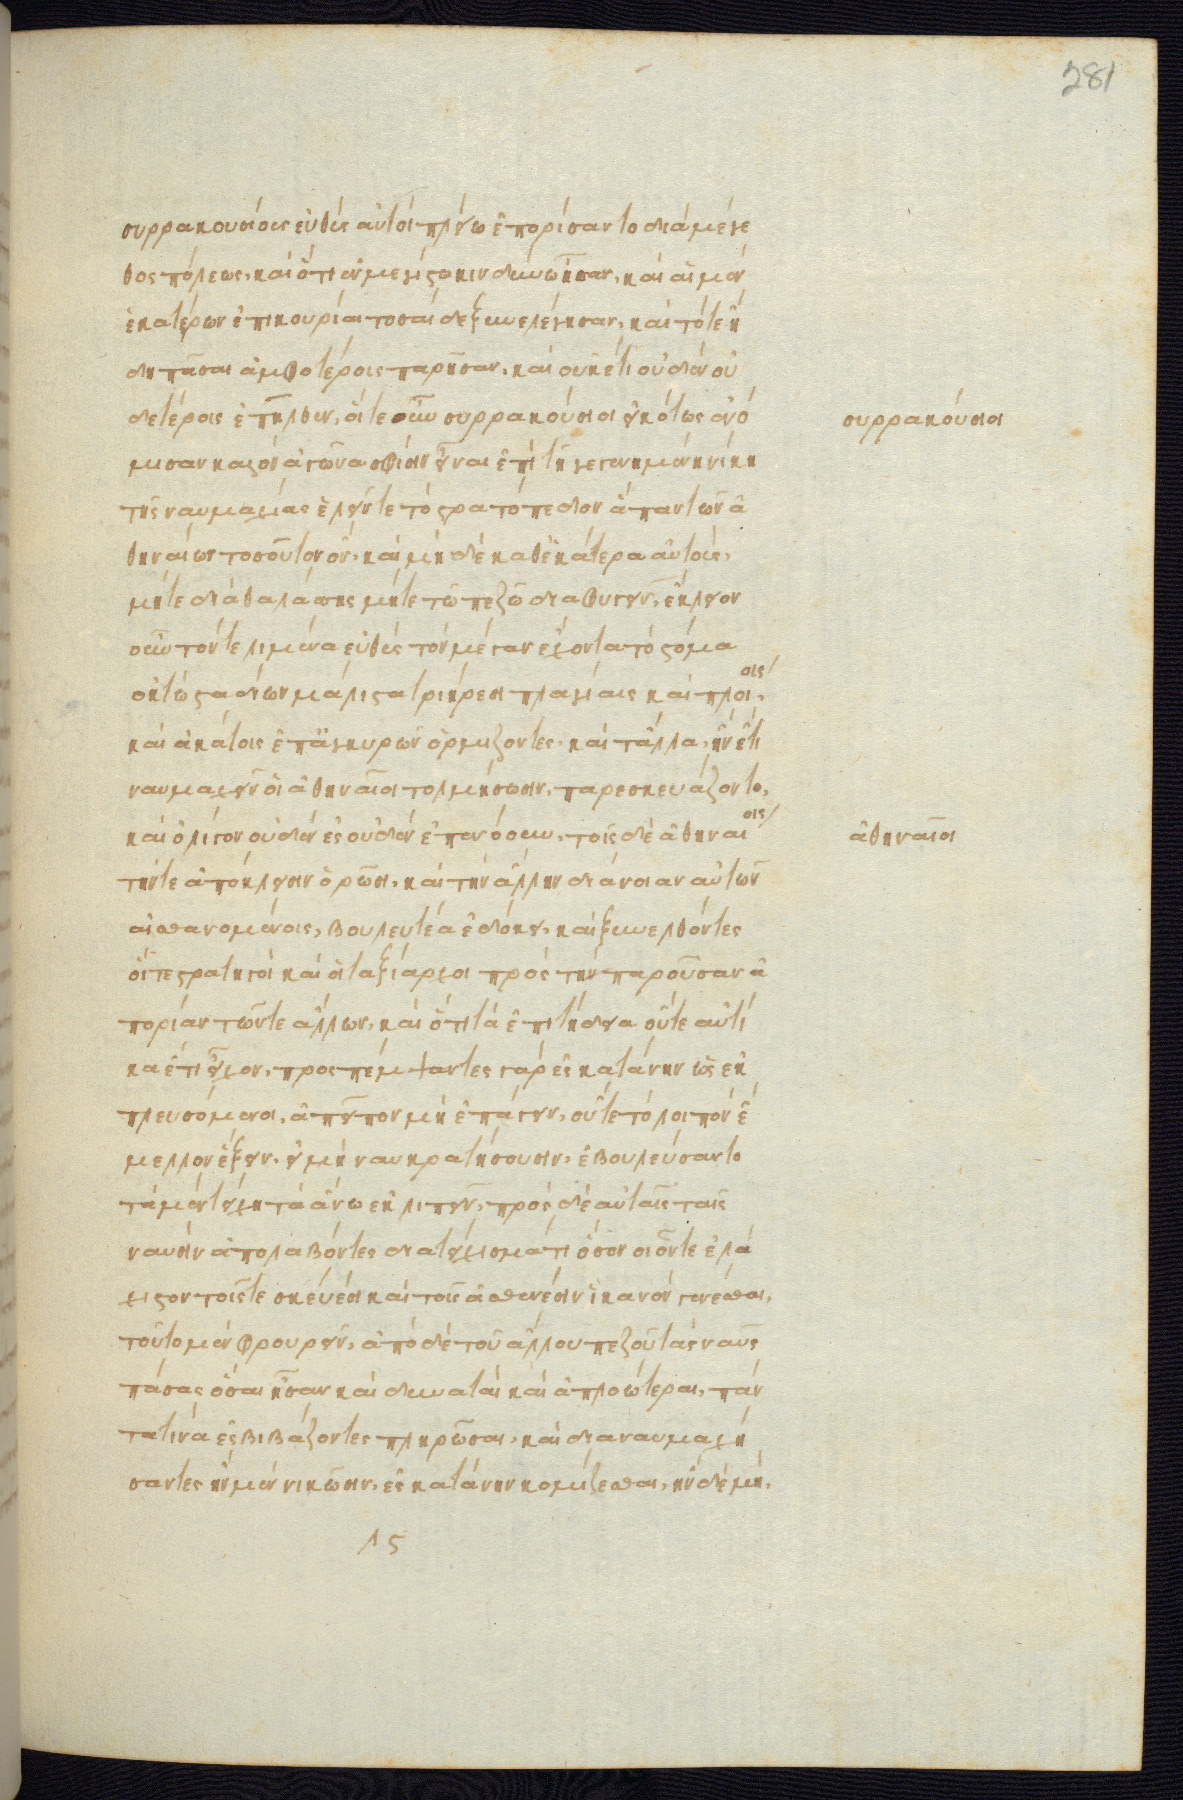 281
συρρακουσίοις εὐθὺς αὐτοὶ πλείω ἐπορίσαντο διὰ μέγε
θος πόλεως, καὶ ὅτι ἐν μεγίστω κινδύνω ἦσαν. καὶ αἱ μὲν
ἑκατέρων ἐπικουρίαι τοσαίδε ξυνελέγησαν, καὶ τότε ἤ
δη πᾶσαι ἀμφοτέροις παρῆσαν, καὶ οὐκέτι οὐδὲν οὐ
δετέροις ἐπῆλθεν, οἵ τε οὖν συρρακούσιοι εἰκότως ἐνό
συρρακούσιοι
μισαν καλὸν ἀγῶνα σφίσιν εἶναι ἐπὶ τῆ γεγενημένη νίκη
τῆς ναυμαχίας ἑλεῖν τε τὸ στρατόπεδον ἁπάντων ἀ
θηναίων τοσοῦτον ὄν, καὶ μὴ δὲ καθ' ἑκάτερα αὐτοὺς,
μήτε διὰ θαλάσσης μήτε τῶ πεζῶ διαφυγεῖν, ἔκλειον
οὖν τόν τε λιμένα εὐθὺς τὸν μέγαν ἔχοντα τὸ στόμα
ὀκτὼ σταδίων μάλιστα τριήρεσι πλαγίαις καὶ πλοίοις,
καὶ ἀκάτοις ἐπ' ἀγκυρῶν ὁρμίζοντες, καὶ τἆλλα, ἢν ἔτι
ναυμαχεῖν οἱ ἀθηναῖοι τολμήσωσιν, παρεσκευάζοντο,
καὶ ὀλίγον οὐδὲν ἐς οὐδὲν ἐπενόουν, τοῖς δὲ ἀθηναίοις
ἀθηναῖοι
τήν τε ἀπόκλεισιν ὁρῶσι, καὶ τὴν ἄλλην διάνοιαν αὐτῶν
αἰσθανομένοις, βουλευτέα ἐδόκει, καὶ ξυνελθόντες
οἵ τε στρατηγοὶ καὶ οἱ ταξίαρχοι πρὸς τὴν παροῦσαν ἀ
πορίαν τῶν τε ἄλλων, καὶ ὅτι τὰ ἐπιτήδεια οὔτε αὐτί
κα ἔτι εἶχον, προσπέμψαντες γὰρ ἐς κατάνην ὡς ἐκ
πλευσόμενοι, ἀπεῖπον μὴ ἐπάγειν, οὔτε τὸ λοιπὸν ἔ
μελλον ἕξειν, εἰ μὴ ναυκρατήσουσιν, ἐβουλεύσαντο
τὰ μὲν τείχη τὰ ἄνω ἐκλιπεῖν, πρὸς δὲ αὐταῖς ταῖς
ναυσὶν ἀπολαβόντες διατειχίσματι ὅσον οἷόν τε ἐλά
χιστον τοῖς τε σκεύεσι καὶ τοῖς ἀσθενέσιν ἱκανὸν γενέσθαι,
τοῦτο μὲν φρουρεῖν, ἀπὸ δὲ τοῦ ἄλλου πεζοῦ τὰς ναῦς
πάσας ὅσαι ἦσαν καὶ δυναταὶ καὶ ἀπλοώτεραι, πάν
τα τινὰ ἐσβιβάζοντες πληρῶσαι, καὶ διαναυμαχή
σαντες ἢν μὲν νικῶσιν, ἐς κατάνην κομίζεσθαι, ἢν δὲ μὴ,
λς